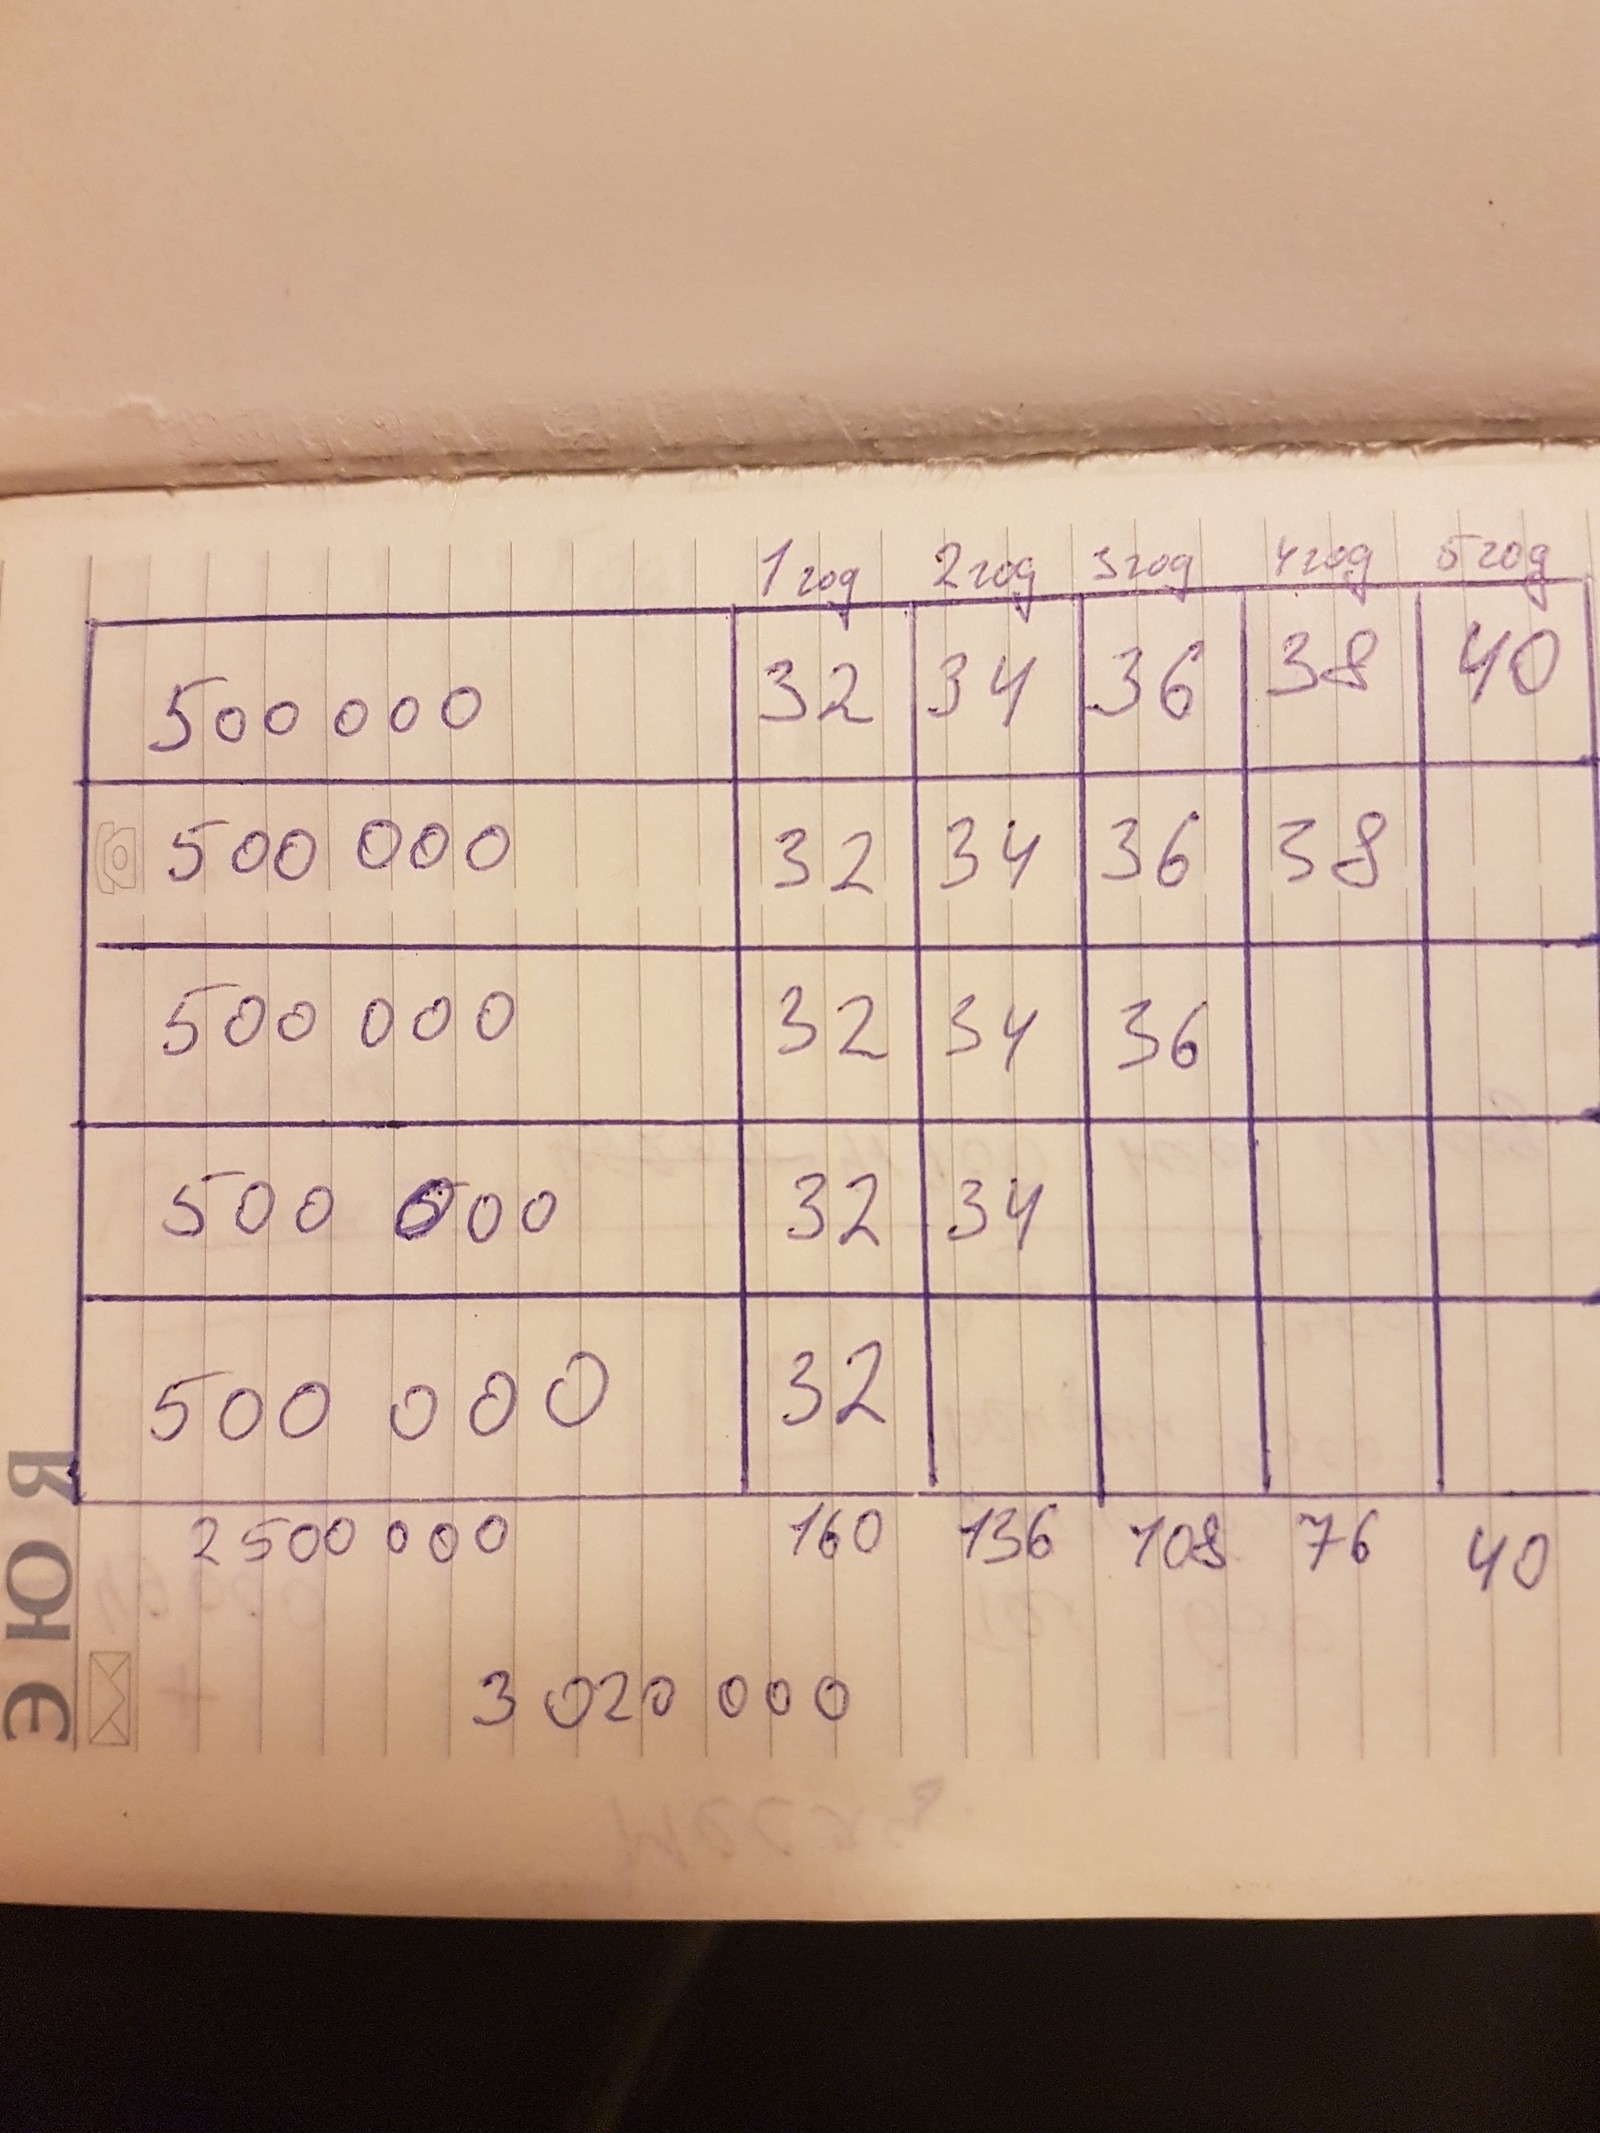 1 год 2 год 3 год 4 год 5 год
500 000 32 34 36 38 40
500 000 32 34 36 38
500 000 32 34 36
500 000 32 34
500 000 32
2 500 000 160 136 108 76 40
3 020 000